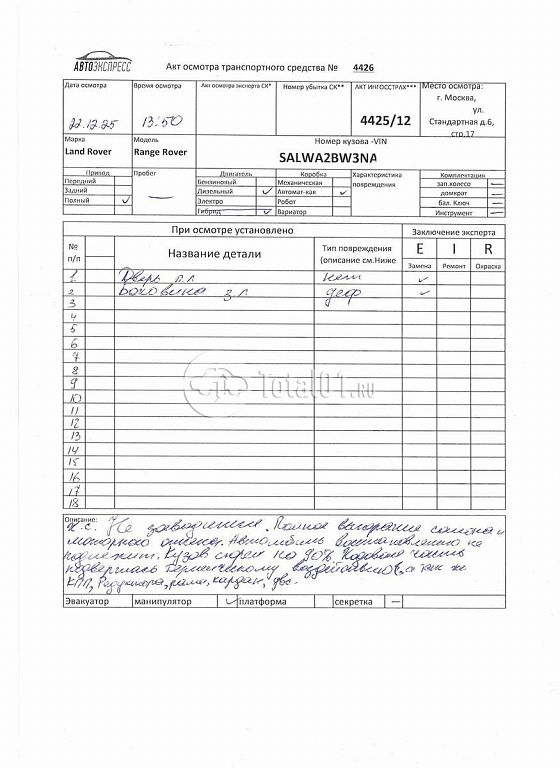 АВТОЭКСПРЕСС
Акт осмотра транспортного средства № 4426
Дата осмотра Время осмотра Акт осмотра эксперта СК* Номер убытка СК** АКТ ИНГОССТРАХ*** Место осмотра:
г. Москва,
ул.
22.12.25 13:50 4425/12 Стандартная д.6,
стр.17
Марка Модель Номер кузова -VIN
Land Rover Range Rover SALWA2BW3NA
Привод Пробег Двигатель Коробка Характеристика повреждения Комплектация
Передний Бензиновый Механическая зап.колесо —
Задний — Дизельный ✓ Автомат-кая ✓ домкрат —
Полный ✓ Электро Робот бал. Ключ —
Гибрид ✓ Вариатор Инструмент —
При осмотре установлено Заключение эксперта
№ п/п Название детали Тип повреждения (описание см.Ниже E I R
Замена Ремонт Окраска
1 Дверь п.л нет ✓
2 Боковина з.л деф ✓
3
4
5
6
7
8
9
10
11
12
13
14
15
16
17
18
Total01.RU
Описание:
Не заводится. Полное выгорание салона и
моторного отсека. Автомобиль восстановлению не
подлежит. Кузов сгорел на 90%. Ходовая часть
подверглась термическому воздействию, а так же
КПП, Редуктора, рама, кардан, двс.
Эвакуатор манипулятор ✓ платформа секретка —